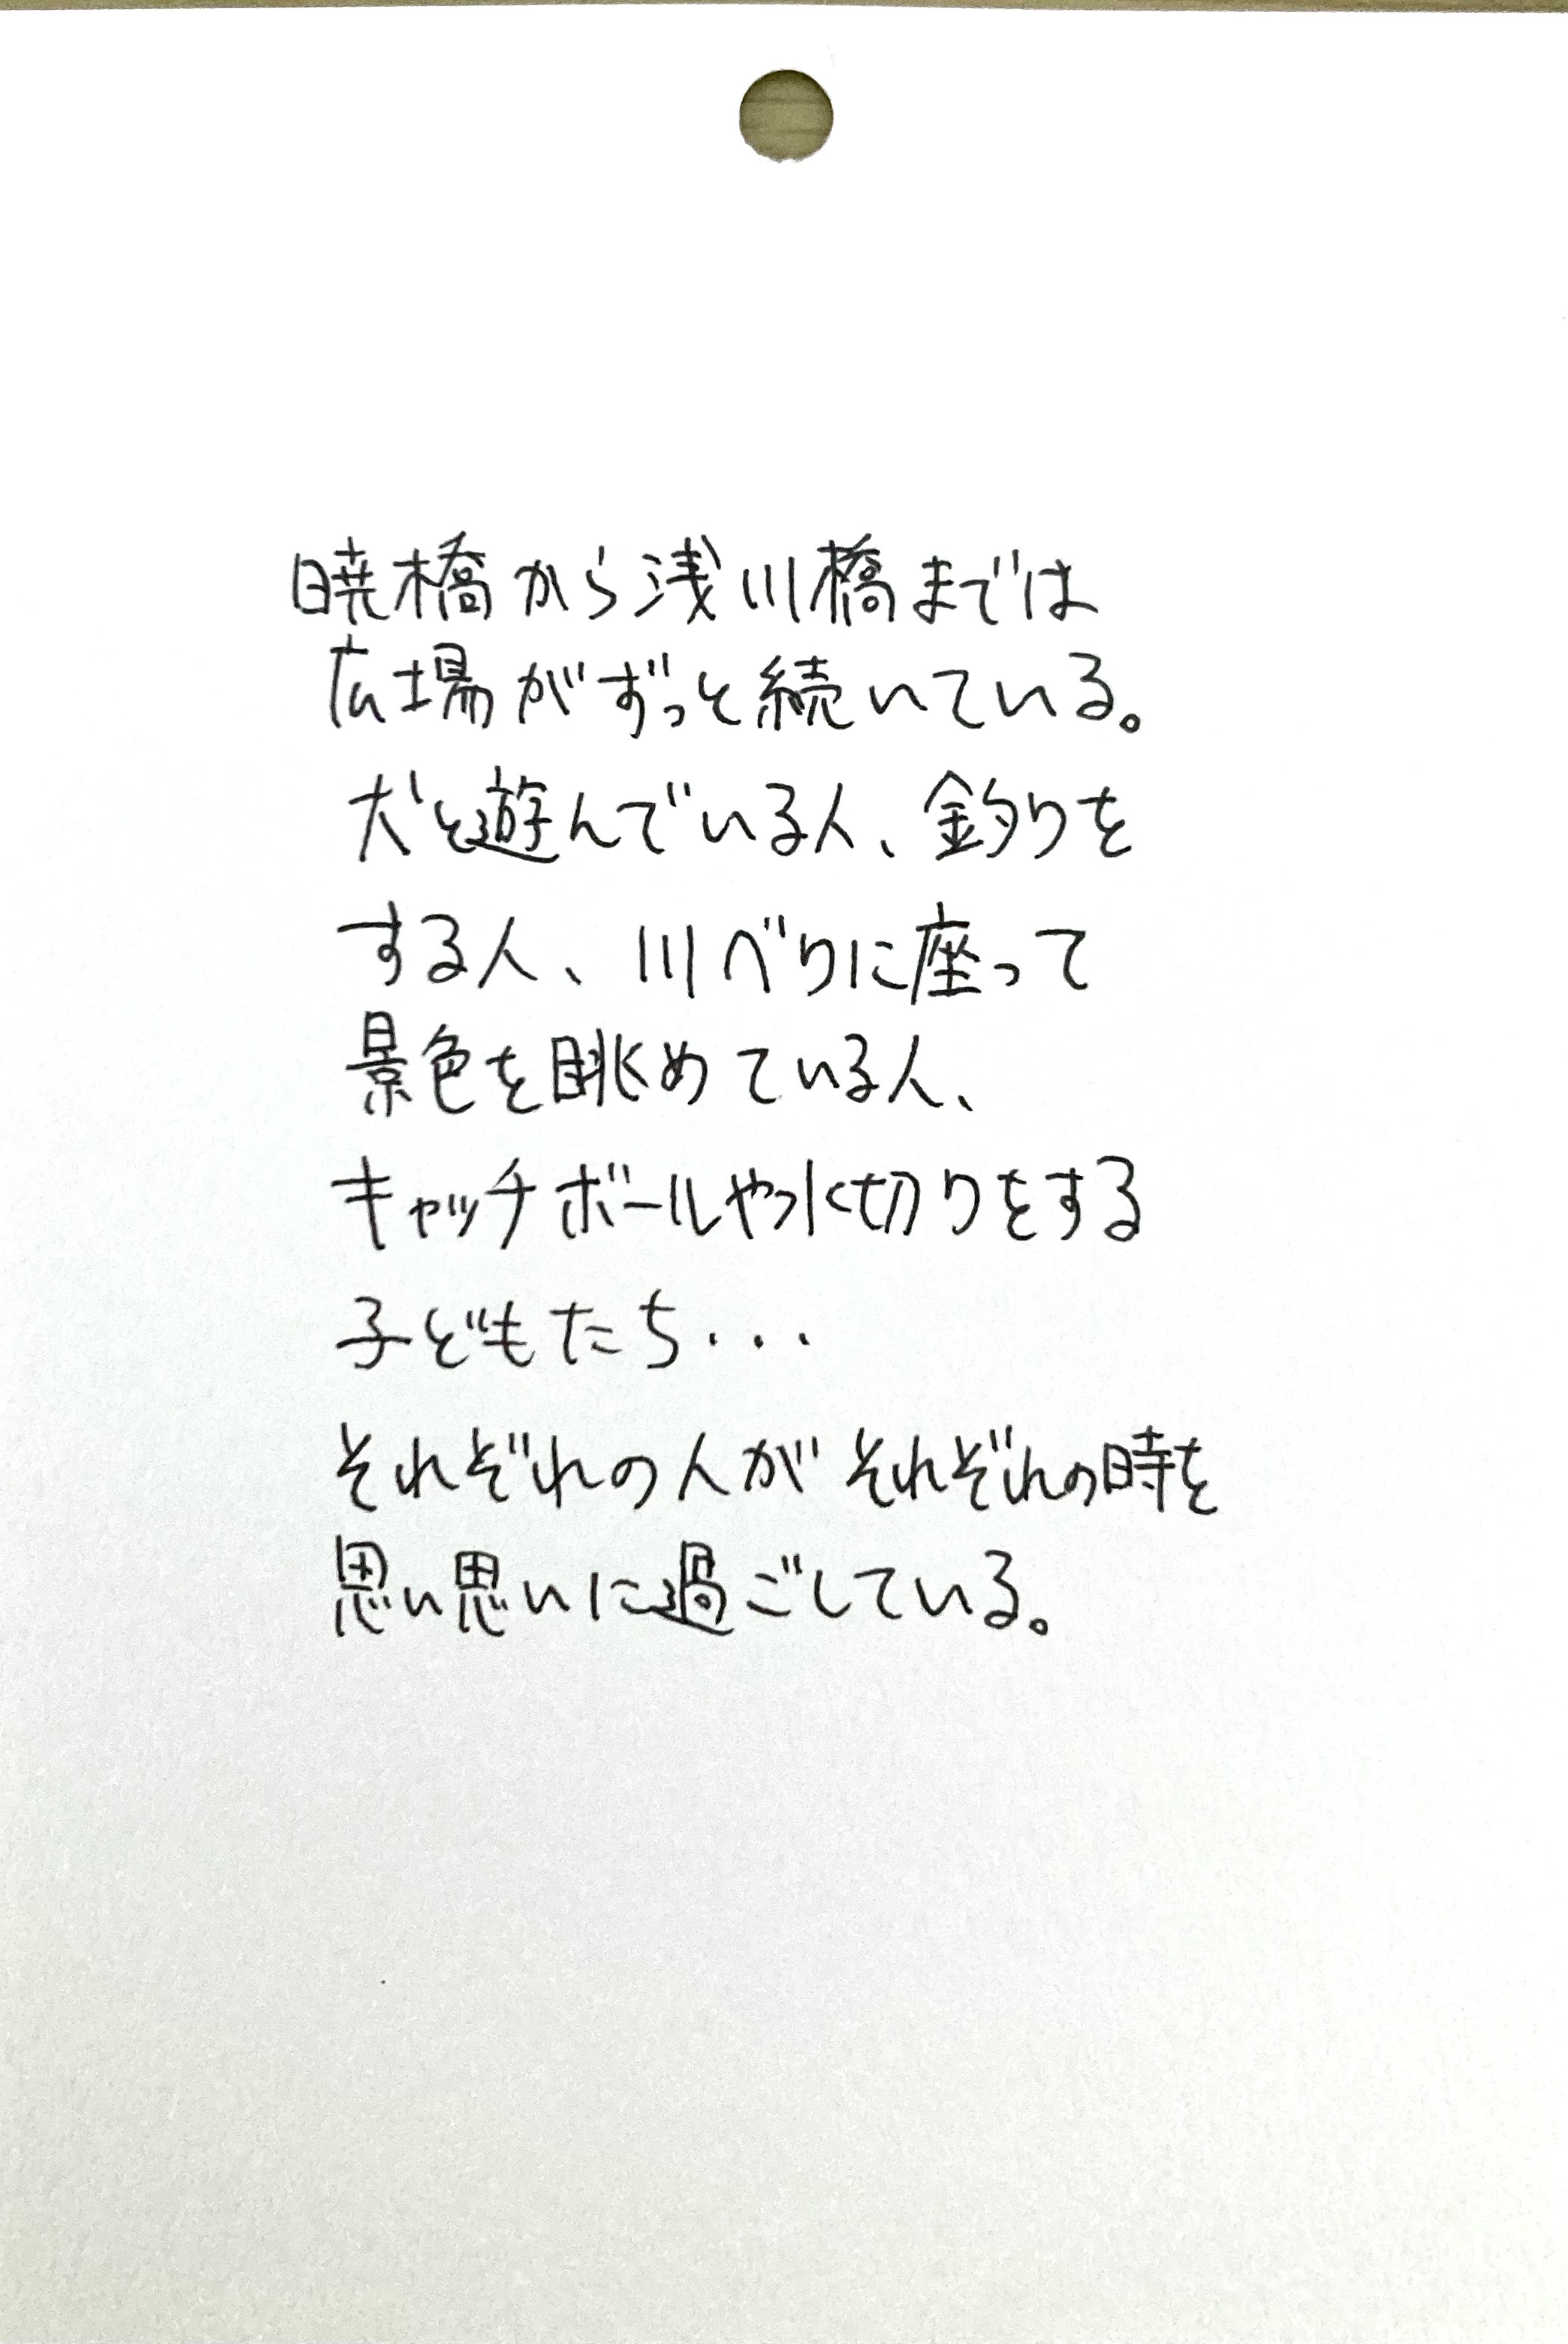 暁橋から浅川橋までは
広場がずっと続いている。
犬と遊んでいる人、釣りを
する人、川べりに座って
景色を眺めている人、
キャッチボールや水切りをする
子どもたち...
それぞれの人がそれぞれの時を
思い思いに過ごしている。